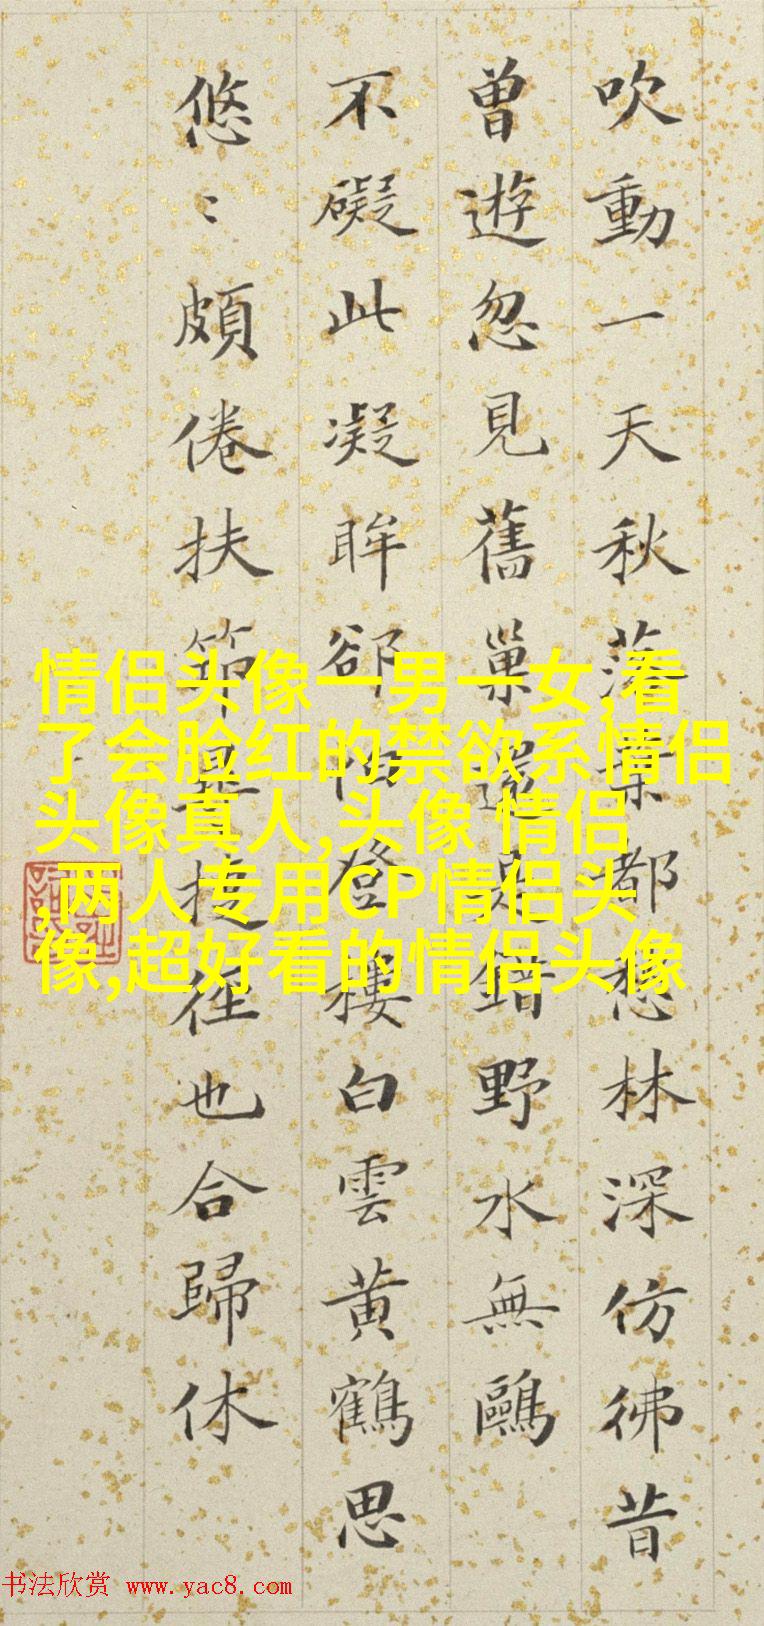 吹動一天秋落葉都愁林深仿彿昔
曾遊忽見舊巢還是錯野水無鷗
不礙此凝眸卻怕登樓白雲黃鶴思
悠〻頗倦扶筇尋捷徑也合歸休
情侣头像一男一女,看
了会脸红的禁欲系情侣
头像真人,头像 情侣
,两人专用CP情侣头
像,超好看的情侣头像
书法欣赏 www.yac8.com